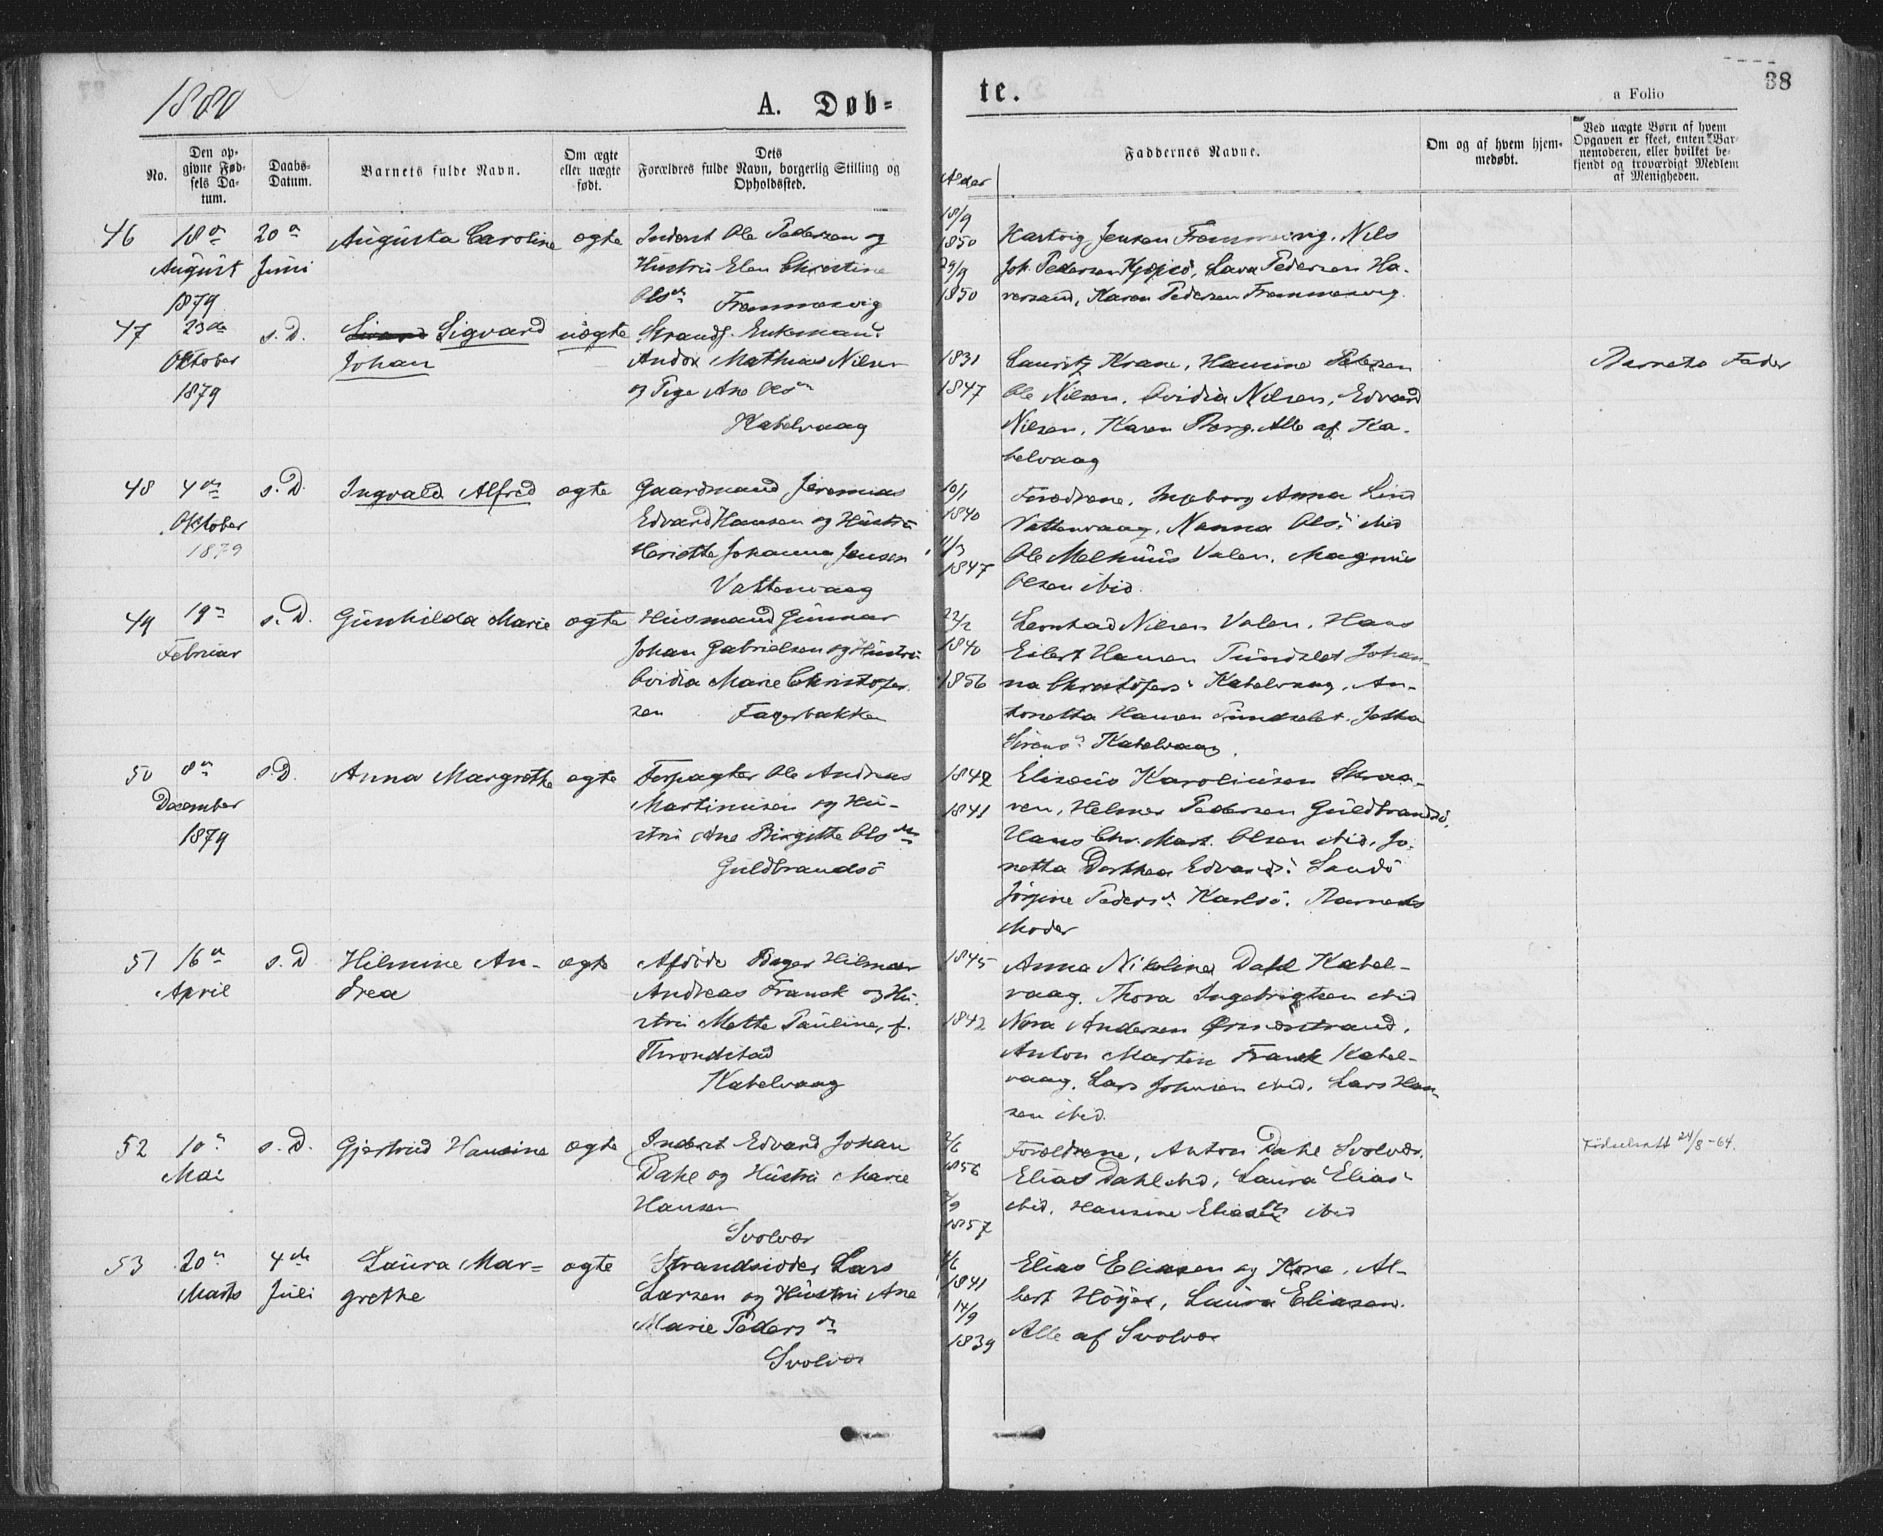 1880
A. Døb-
te.
a Folio
38
No.
Den op-
givne Fød-
sels Da-
tum.
Daabs-
Datum.
Barnets fulde Navn.
Om ægte
eller uægte
født.
Dets
Forældres fulde Navn, borgerlig Stilling og
Opholdssted.
Alder
Faddernes Navne.
Om og af hvem hjem-
medøbt.
Ved uægte Børn af hvem
Opgaven er skeet, enten Bar-
nemoderen, eller hvilket be-
kjendt og troværdigt Medlem
af Menigheden.
46
18de
August
1879
20de
Juni
Augusta Caroline
ægte
Inderst Ole Pedersen og
Hustru Elen Christine
Olsdr
Fremmesvig
18/9
1850
29/9
1850
Hartvig Jensen Fremmesvig. Nils
Joh. Pedersen, Lava Pedersen Ha-
versand, Karen Pedersen Fremmesvig.
47
23de
Oktober
1879
s. D.
Sigvard
Johan
uægte
Strands. Enkemand
Andor Mathias Nilsen
og Pige Ane Olsdr
Kabelvaag
1831
1847
Lauritz Krane, Hansine Petersen
Ole Nilsen. Ovidia Nilsen, Edvard
Nilsen, Karen Berg. Alle af Ka-
belvaag
Barnets Fader
48
4de
Oktober
1879
s. D.
Ingvald Alfred
ægte
Gaardmand Jeremias
Edvard Hansen og Hustru
Hariette Johanna Jensen
Vattervaag
10/1
1840
1847
Forældrene, Ingeborg Anna Lind
Vattervaag, Nanna Ols. ibid
Ole Melhuus Valen. Magnus
Olsen ibid.
49
19de
Februar
s. D.
Gunhilda Marie
ægte
Husmand Gunnar
Johan Gabrielsen og Hustru
Ovidia Marie Christofer-
sen
Fagerbakken
22/2
1840
1856
Leonhard Nilsen Valen. Hans
Eilert Hansen Tundslet Johan-
na Christofers. Kabelvaag. An-
tonetta Hansen Tundslet. Jetta
Sivers. Kabelvaag.
50
8de
December
1879
s. D.
Anna Margrethe
ægte
Forpagter Ole Andreas
Martinusen og Hu-
stru Ane Birgitte Olsdr
Guldbrandsö
1842
1841
Eliseus Karoliusen Skraa-
ven, Helmer Pedersen Guldbrandsö,
Hans Chr. Mart. Olsen ibid, Jo-
netta Dorthea Edvards. Sandö
Jörgine Peders. Karlsö. Barnets
Moder
51
16de
April
s. D.
Hilmine An-
drea
ægte
Afdöde Bager Hilmar
Andreas Franck og Hu-
stru Mette Pauline, f.
Throndstad
Kabelvaag
1845
1842
Anna Nikoline Dahl Kabel-
vaag. Thora Ingebrigtsen ibid
Nora Andersen Örsnesstrand.
Anton Martin Franck Kabel-
vaag, Lars Johnsen ibid. Lars Han-
sen ibid.
52
10de
Mai
s. D.
Gjertrud Hansine
ægte
Inderst Edvard Johan
Dahl og Hustru Marie
Hansen
Svolvær
2/6
1856
2/9
1857
Forældrene, Anton Dahl Svolvær.
Elias Dahl ibid, Laura Elias.
ibid. Hansine Elias ibid
Födselsatt 24/8-64.
53
20de
Marts
4de
Juli
Laura Mar-
grethe
ægte
Strandsidder Lars
Larsen og Hustru Ane
Marie Pedersdr
Svolvær
1841
14/9
1839
Elias Eliasen og Kone, Al-
bert Höyer, Laura Eliasen.
Alle af Svolvær